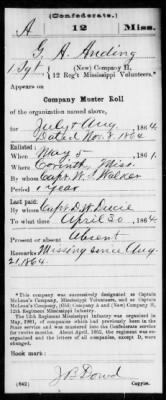 (Confederate.)
A 12 Miss.
G. A. Anding
1 Sgt, (New) Company H,
12 Reg't Mississippi Volunteers.*
Appears on
Company Muster Roll
of the organization named above,
for July & Aug, 1864.
Dated Nov. 8 1864
Enlisted:
When May 5, 1861.
Where Corinth, Miss.
By whom Capt. W. S. Walker
Period 1 Year
Last paid:
By whom Capt. D. W.
To what time April 30, 1864.
Present or absent Absent
Remarks: Missing since Aug.
21, 1864.
*This company was successively designated as Captain
McLean's Company, Mississippi Volunteers, and as Captain
McLean's Company, (Old) Company A and (New) Company H,
12th Regiment Mississippi Infantry.
The 12th Regiment Mississippi Infantry was organized in
May, 1861, of companies which had previously been in the
State service and was mustered into the Confederate service
for twelve months. About April, 1862, the regiment was
organized and the letters of all companies, except D, were
changed.
Book mark:
(642) J B Dowd
Copyist.